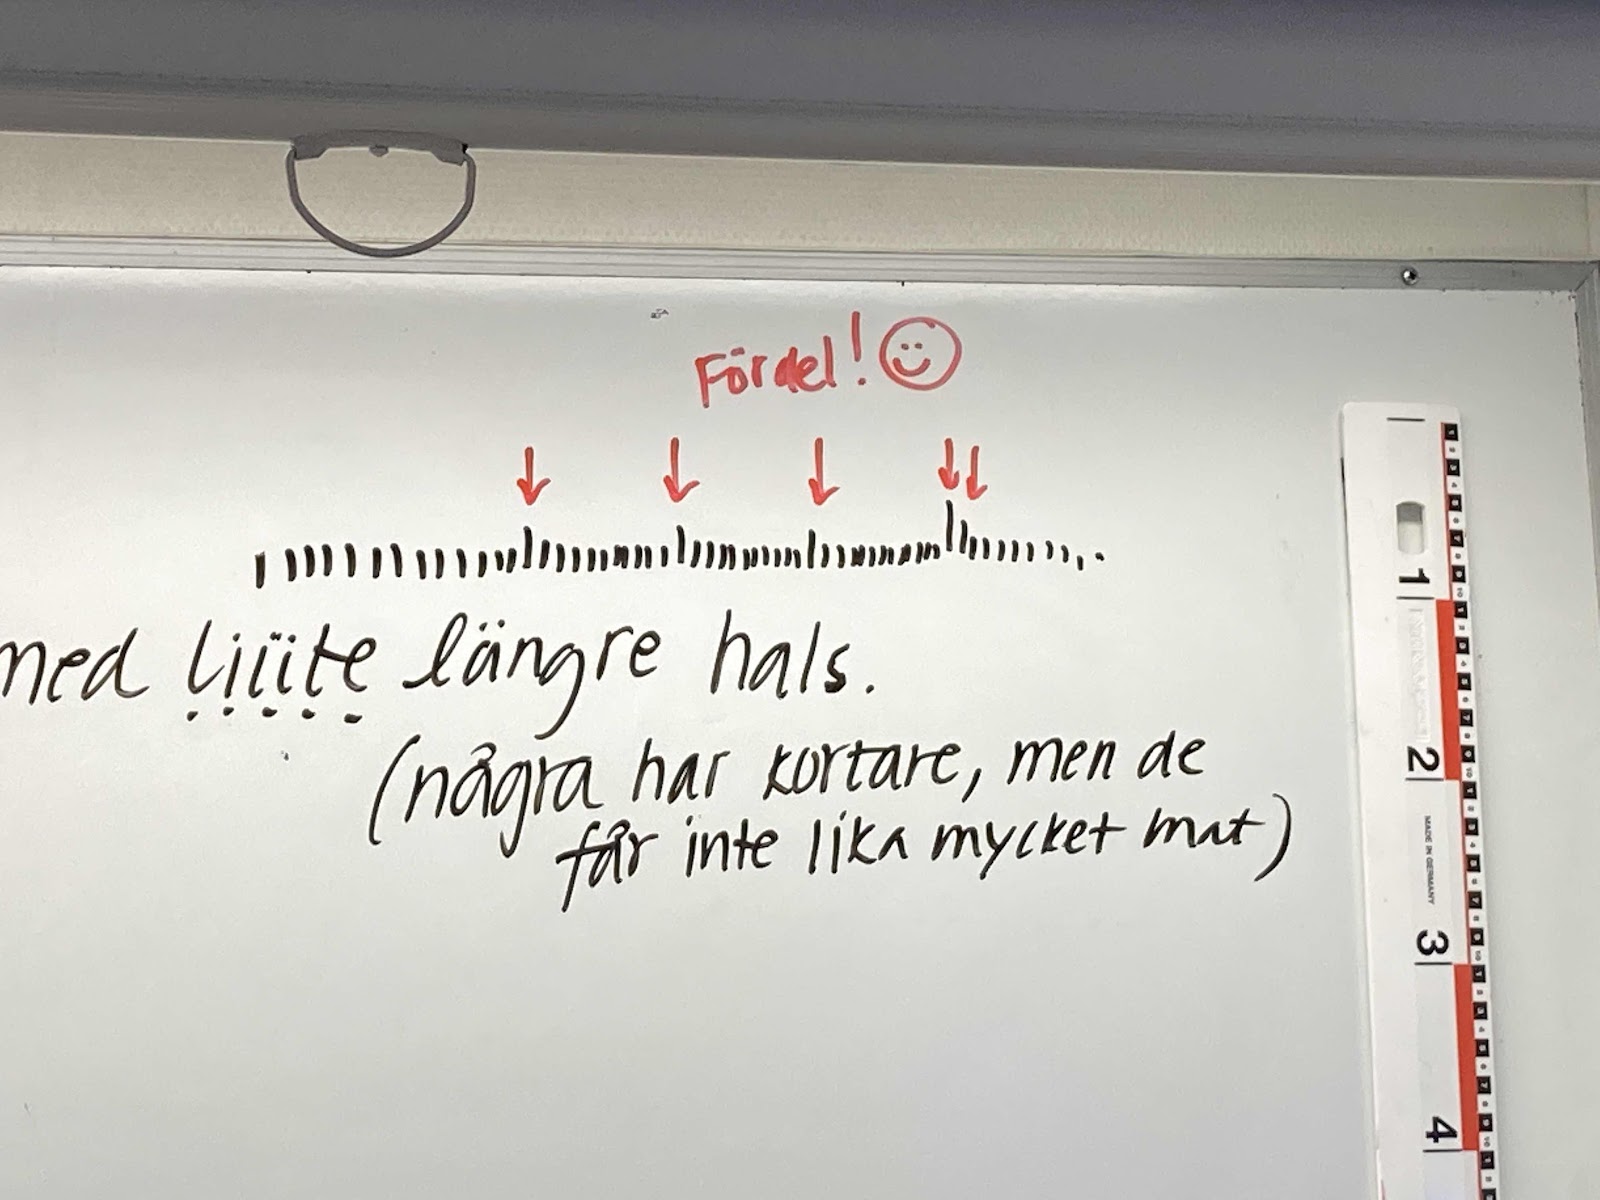 Fördel!
med liiite längre hals.
(några har kortare, men de
får inte lika mycket mat)
1
2
MADE IN GERMANY
3
4